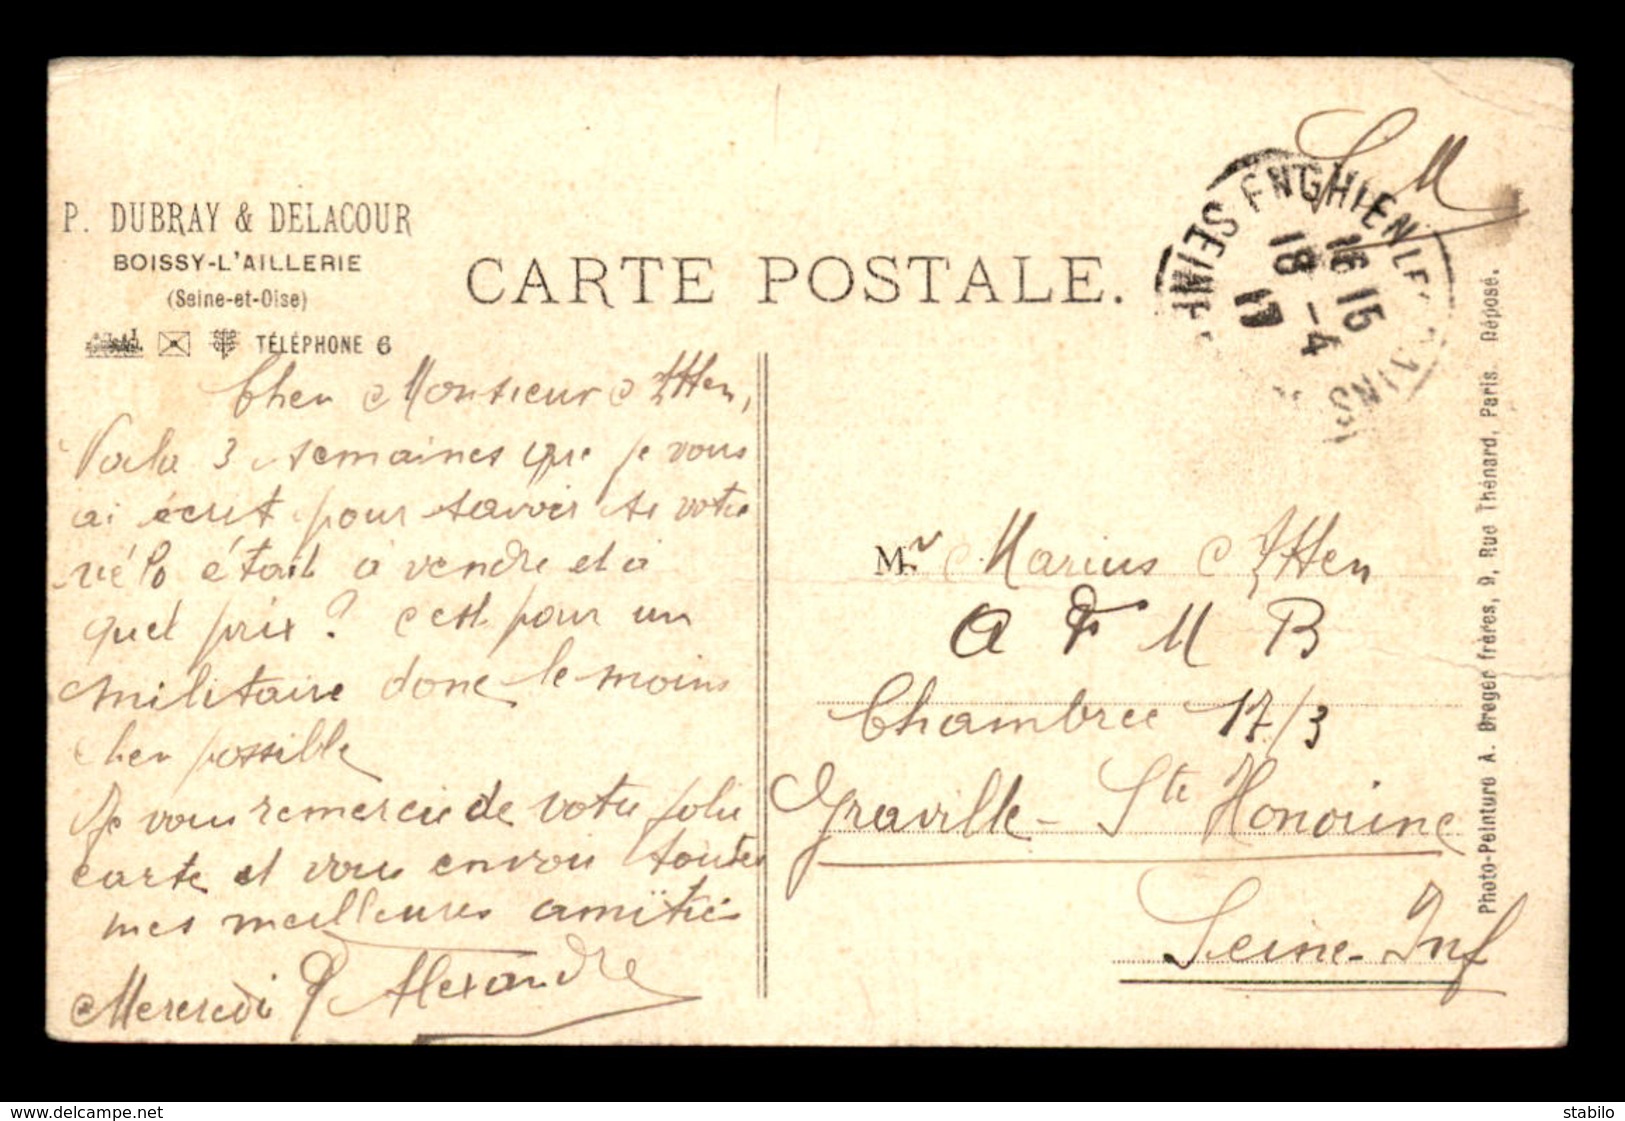 P. DUBRAY & DELACOUR
BOISSY-L'AILLERIE
(Seine-et-Oise)
TÉLÉPHONE 6
CARTE POSTALE.
S M
ENGHIEN LES BAINS SEINE
16 15
18 - 4
17
Cher Monsieur Itten,
Voila 3 semaines que je vous
ai écrit pour savoir si votre
vélo était à vendre et à
quel prix ? c'est pour un
militaire donc le moins
cher possible
Je vous remercie de votre jolie
carte et vous envoie toutes
mes meilleures amitiés
Mercredi P Alexandre
Mr Marius Itten
A F M B
Chambree 17/3
Graville - Ste Honorine
Seine-Inf
Photo-Peinture A. Breger frères, 9, Rue Thénard, Paris. Déposé.
delcampe.net
stabilo